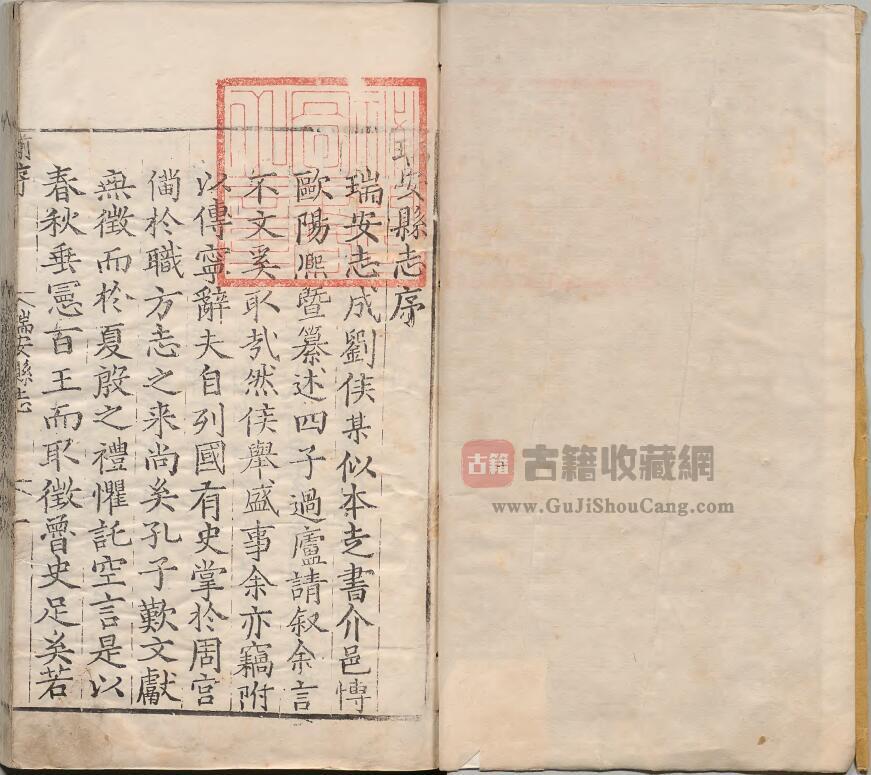 瑞安縣志序
瑞安志成劉侯某似本走書介邑博
歐陽熈暨纂述四子過廬請叙余言
不文奚取㢤然侯舉盛事余亦竊附
以傳寧辭夫自列國有史掌於周官
俻於職方志之来尚矣孔子歎文獻
無徵而於夏殷之禮懼託空言是以
春秋垂憲百王而取徵魯史足矣若
序
瑞安縣志
一
古籍
古籍收藏網
www.GuJiShouCang.com